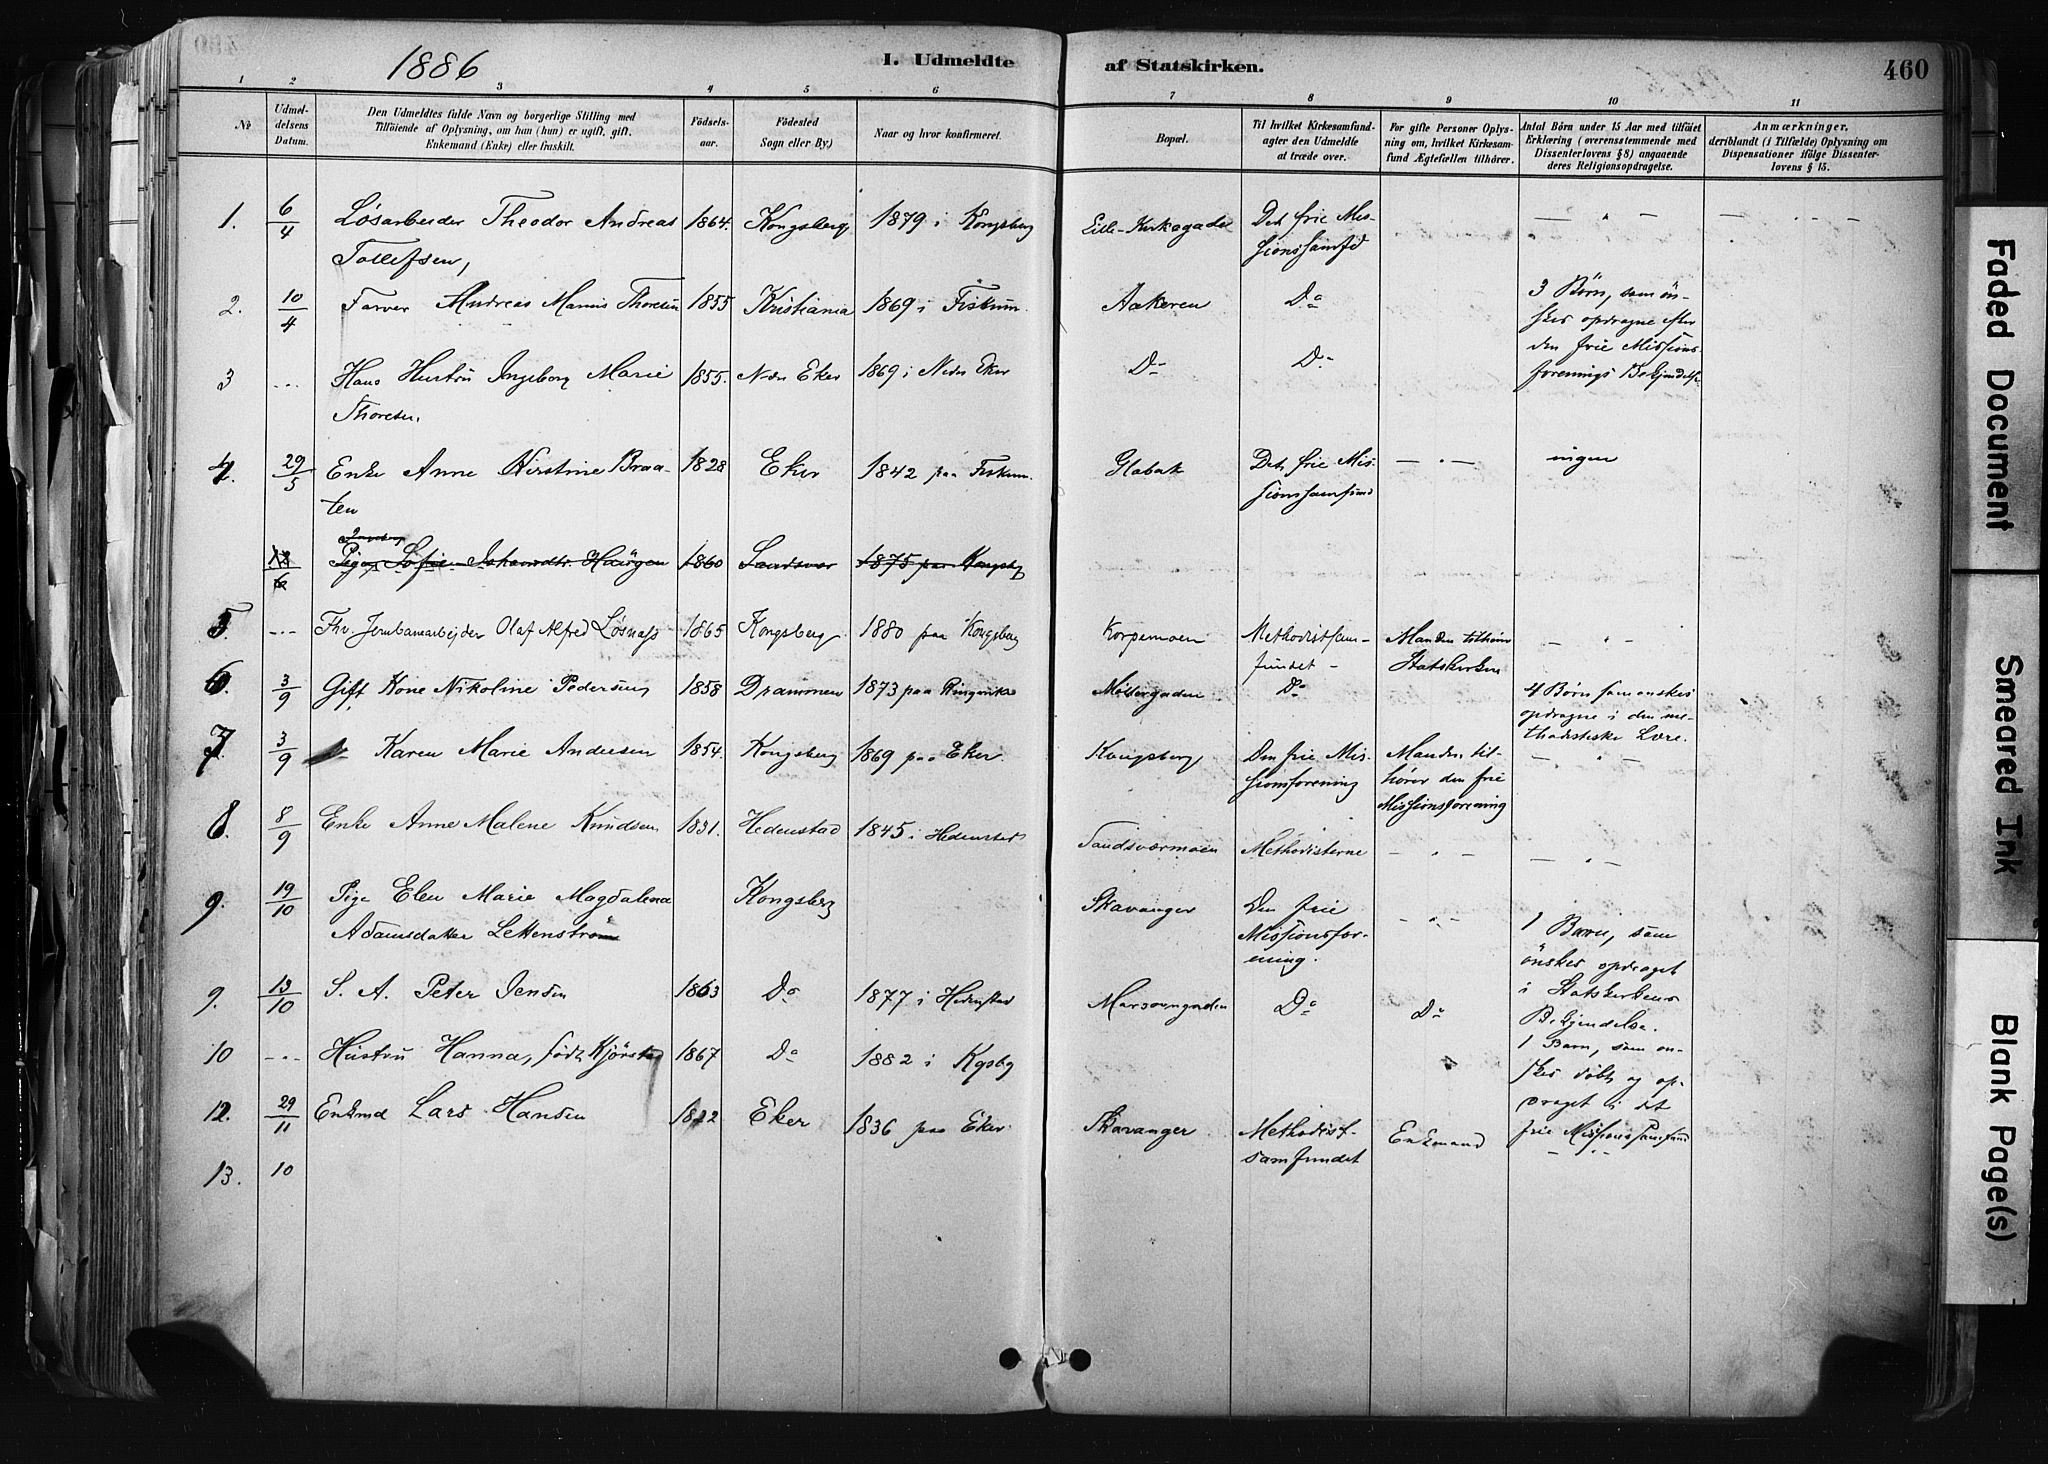 1886
I. Udmeldte af Statskirken.
460
1 2 3 4 5 6 7 8 9 10 11
No
Udmeldelsens Datum.
Den Udmeldtes fulde Navn og borgerlige Stilling med
Tilføiende af Oplysning, om han (hun) er ugift, gift,
Enkemand (Enke) eller fraskilt.
Fødselsaar.
Fødested
Sogn eller By.)
Naar og hvor konfirmeret.
Bopæl.
Til hvilket Kirkesamfund
agter den Udmeldte
at træde over.
For gifte Personer Oplysning
om, hvilket Kirkesamfund
Ægtefællen tilhører.
Antal Børn under 15 Aar med tilføiet
Erklæring (overensstemmende med
Dissenterlovens § 8) angaaende
deres Religionsopdragelse.
Anmærkninger,
deriblandt (i Tilfælde) Oplysning om
Dispensationer ifølge Dissenterlovens
§ 15.
1. 6/4 Løsarbeider Theodor Andreas 1864. Kongsberg 1879 i Kongsberg Lille-Kirkegade Det frie Mis- — " —
Tollefsen, sionssamfd
2. 10/4 Farver Andreas Thoresen 1855 Kristiania 1869 i Fiskum Aakeren Do 3 Børn, som øn-
skes opdragne efter
den frie Missions-
3 --- Hans Hustru Ingeborg Marie 1855. Nedre Eker 1869 i Nedre Eker Do Do forenings Bekjendelse
Thoresen.
4. 29/5 Enke Anne Kirstine Braa- 1828 Eker 1842 paa Fiskum Glabak Det frie Mis- — " — ingen
ten sionssamfund
18/6 Pige Sofie Johannsdtr. Haugen 1860 Sandsvær 1875 paa Kongsbg
5. --- Fhv. Jernbanearbejder Olaf Alfred Løsnæss 1865 Kongsberg 1880 paa Kongsberg Korpemoen Methodistsam- Manden tilhører — " —
fundet - Statskirken
6. 3/9 Gift Kone Nikoline Pedersen 1858 Drammen 1873 paa Ringerike Møllergaden Do 4 Børn som ønskes
opdragne i den me-
thodistiske Lære.
7. 3/9 Karen Marie Andersen 1854. Kongsberg 1869 paa Eker Kongsberg Den frie Mis- Manden til- — " —
sionsforening hører den frie
Missionsforening
8. 8/9 Enke Anne Malene Knudsen 1831. Hedenstad 1845 i Hedenstad Sandsværmoen Methodisterne — " — — " —
9. 19/10 Pige Elen Marie Magdalena Kongsberg Skavanger Den frie — " — 1 Barn, som
Adamsdatter Lettenstrøm Missionsfor- ønskes opdraget
ening. i Statskirkens
9. 13/10 S. A. Peter Jensen 1863 Do 1877 i Hedenstad Do Do Bekjendelse.
10 --- Hustru Hanna, født Kjørstad 1867 Do 1882 i Kgsbg 1 Barn, som øn-
skes døbt og op-
draget i det
12. 29/11 Enkmd Lars Hansen 1822 Eker 1836 paa Eker Skavanger Methodist- Enkmand frie Missionssamfund
samfundet — " —
13. 10
Faded Document
Smeared Ink
Blank Page(s)